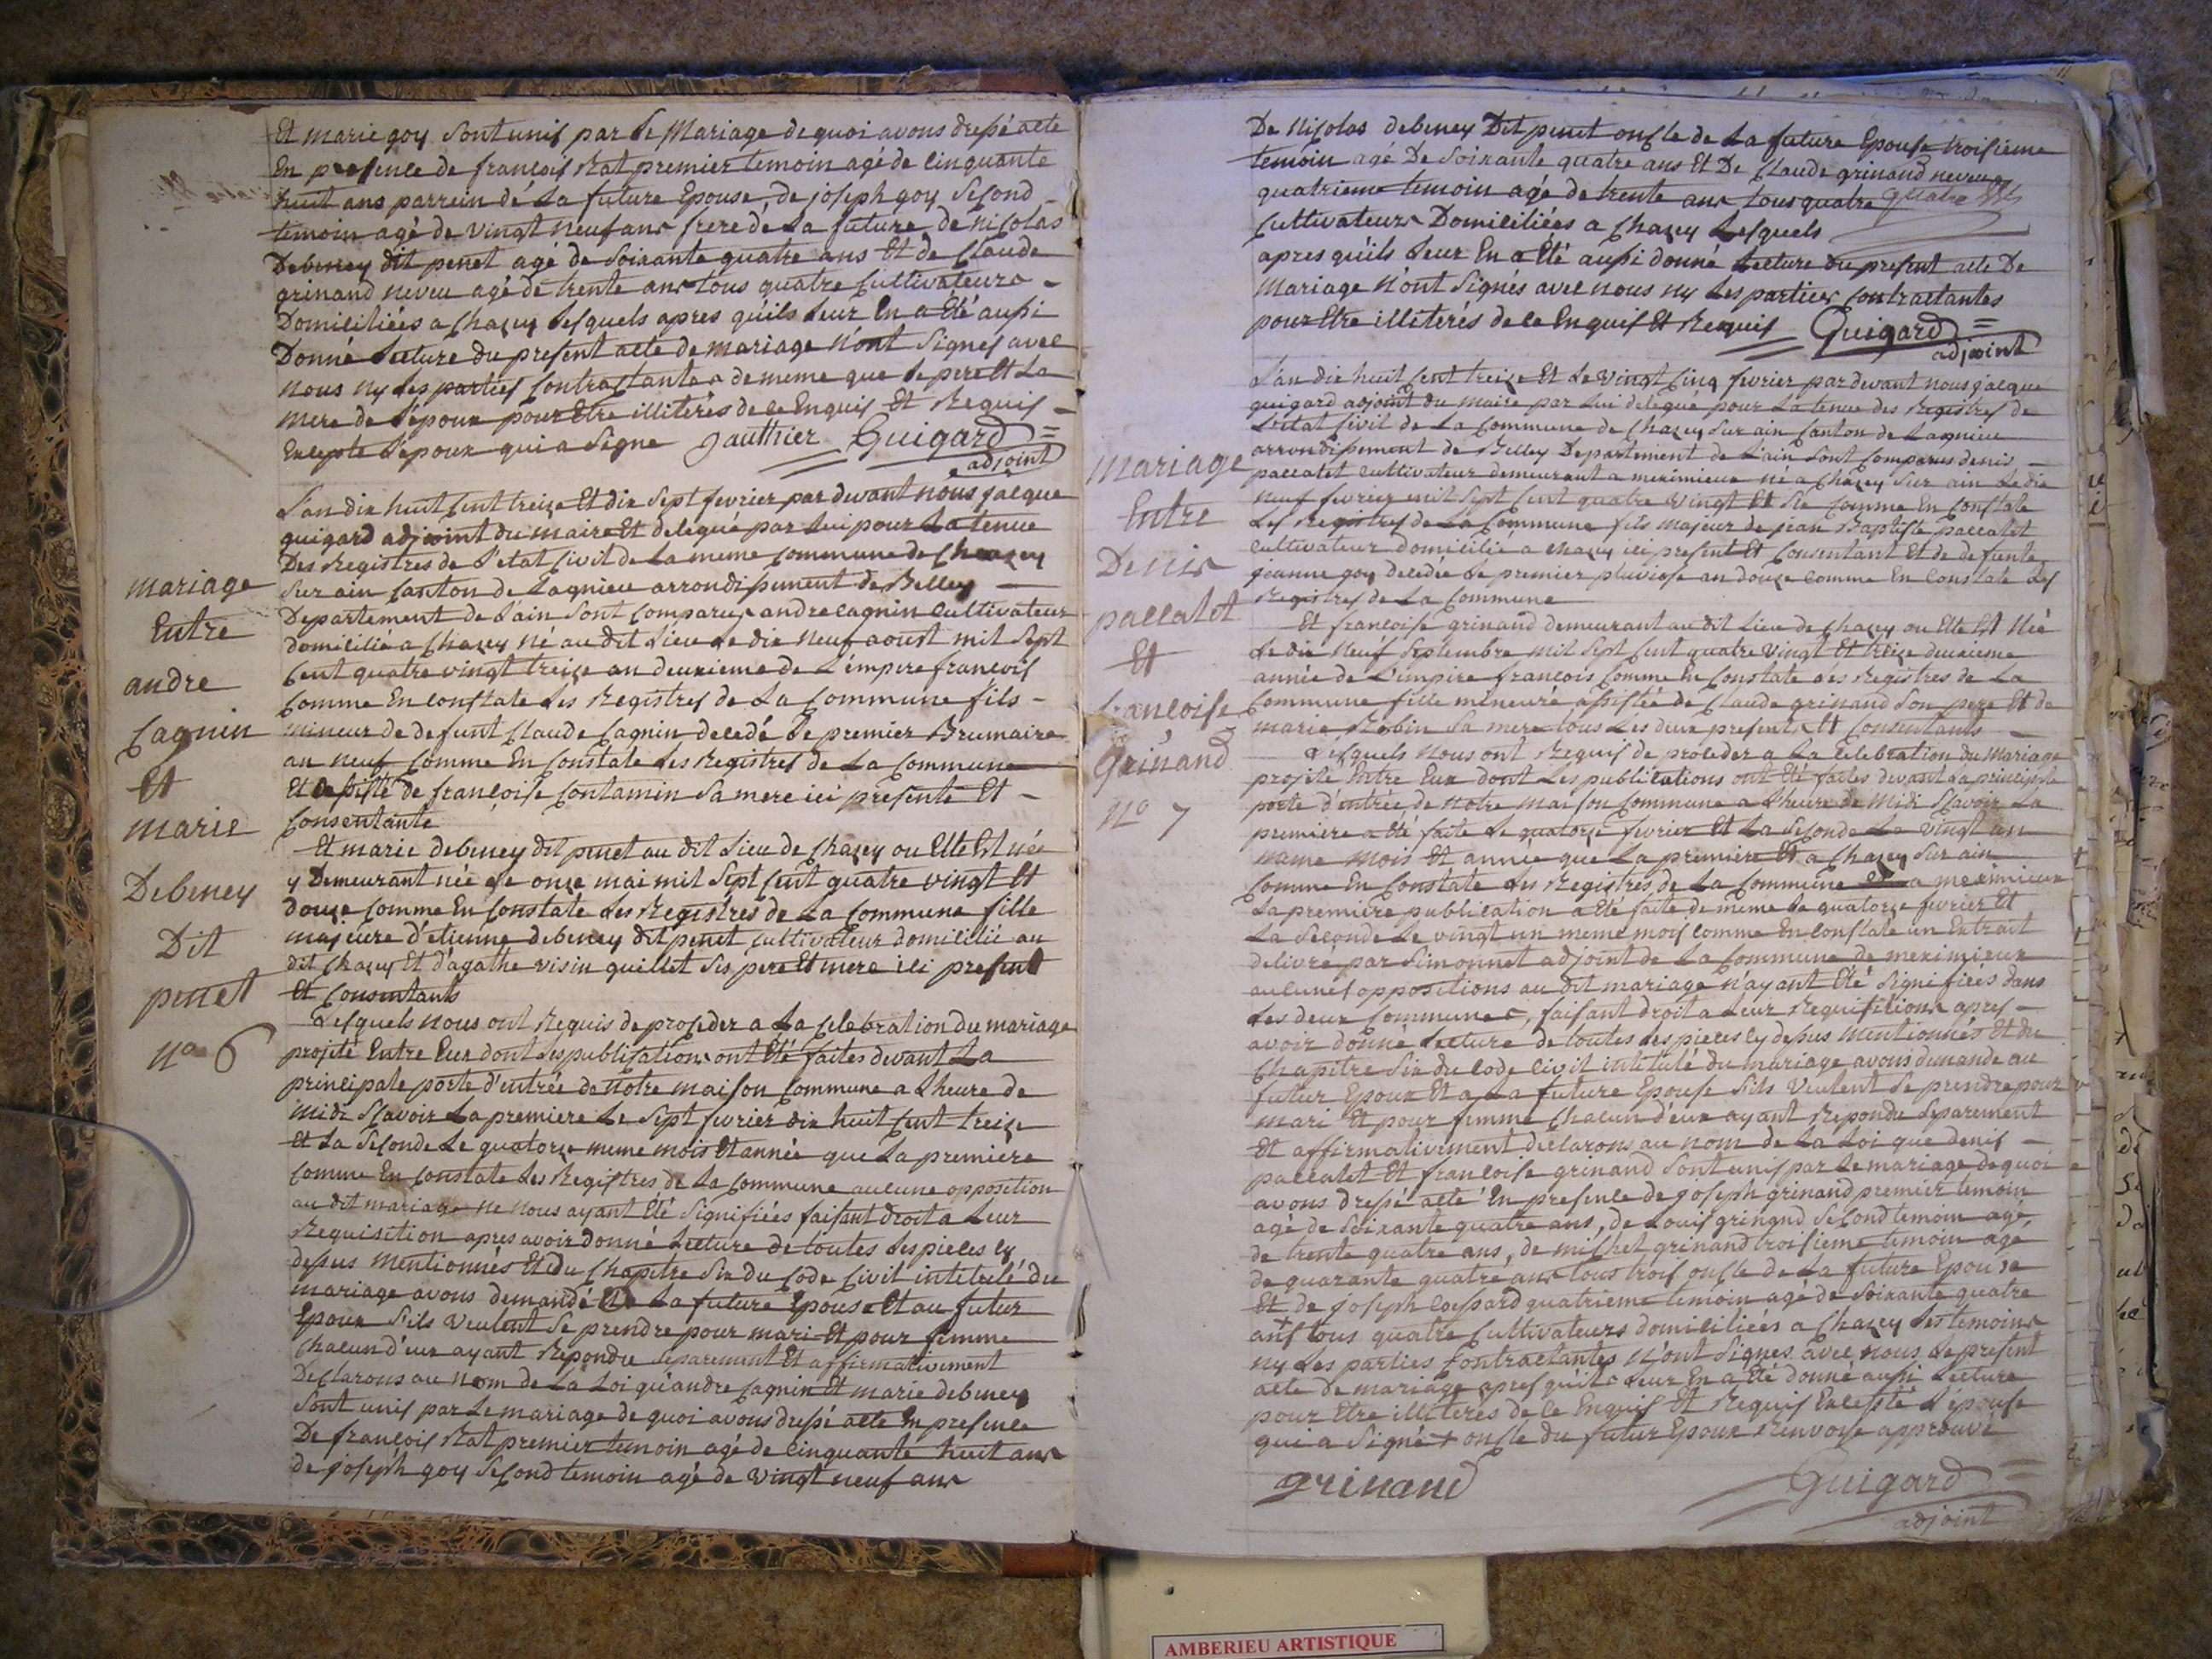 Et marie goy sont unis par le Mariage de quoi avons dressé acte
En presence de françois Rat premier temoin agé de cinquante
huit ans parrein dé La future Epouse, de joseph goy second
temoin agé de vingt neuf ans frere de La future de nicolas
Debeney dit penet agé de soixante quatre ans Et de Claude
grinand neveu agé de trente ans tous quatre Cultivateurs
Domiciliées a Chazey lesquels apres qu'ils leur En a Eté aussi
Donné lecture du present acte de mariage n'ont Signés avec
nous ny les parties Contractantes de meme que le pere Et La
mere de l'époux pour Etre illiterés de ce Enquis Et Requis
Excepte l'epoux qui a Signe gauthier Guigard
adjoint
L'an dix huit Cent treize Et dix sept fevrier par devant nous jacque
guigard adjoint du maire Et delegué par lui pour La tenue
Des Registres de l'etat Civil de La meme Commune de Chazey
Sur ain Canton de Lagnieu arrondissement de Belley
Departement de L'ain sont Comparus andre Cagnin Cultivateur
domicilié a Chazey né au dit Lieu le dix neuf aoust mil sept
Cent quatre vingt treize an deuxieme de L'empire françois
Comme En Constate Les Registres de La Commune fils
mineur de defunt Claude Cagnin decedé le premier Brumaire
an neuf Comme En Constate Les Registres de La Commune
Et assisté de françoise Contamin sa mere ici presente Et
Consentante
Et marie debeney dit penet au dit Lieu de Chazey ou Elle Est née
y Demeurant née le onze mai mil Sept Cent quatre vingt Et
douze Comme En Constate Les Registres de La Commune fille
majeure d'etienne debeney dit penet Cultivateur domicilié au
dit Chazey Et d'agathe visin quillet ses pere Et mere ici present
Et Consentants
Lesquels nous ont Requis de proceder a La Celebration du mariage
projeté Entre Eux dont Les publications ont Eté faites devant La
principale porte d'entrée de notre maison Commune a L'heure de
midi Scavoir La premiere Le Sept fevrier dix huit Cent treize
Et La Seconde Le quatorze meme mois Et année que La premiere
Comme En Constate Les Registres de La Commune aucune opposition
au dit mariage ne nous ayant Eté Signifiées faisant droit a Leur
Requisition apres avoir donné Lecture de toutes Les pieces Cy
dessus mentionnés Et du Chapitre Six du Code Civil intitulé du
mariage avons demandé a La future Epouse Et au futur
Epoux S'ils veulent Se prendre pour mari Et pour femme
Chacun d'eux ayant Repondu Separement Et affirmativement
Declarons au nom de La Loi qu'andre Cagnin Et marie debeney
Sont unis par Le mariage de quoi avons dressé acte En presence
De françois Rat premier temoin agé de cinquante huit ans
de joseph goy Second temoin agé de vingt neuf ans
mariage
Entre
andre
Cagnin
Et
marie
Debeney
Dit
penet
n° 6
De Nicolas debeney Dit penet oncle de La future Epouse troisieme
temoin agé De Soixante quatre ans Et De Claude grinand neveu
quatrieme temoin agé de trente ans tous quatre
Cultivateurs Domiciliées a Chazey Lesquels
apres qu'ils Leur En a Eté aussi donné Lecture du present acte De
Mariage N'ont Signés avec nous ny Les parties Contractantes
pour Etre illiterés de ce Enquis Et Requis Guigard
adjoint
L'an dix huit Cent treize Et Le vingt Cinq fevrier par devant nous jacque
guigard adjoint du maire par Lui delegué pour La tenue des Registres de
L'état Civil de La Commune de Chazey Sur ain Canton de Lagnieu
arrondissement de Belley Departement de L'ain Sont Comparus denis
paccalet Cultivateur demeurant a meximieux né a Chazey Sur ain Le dix
neuf fevrier mil Sept Cent quatre vingt Et Six Comme En Constate
Les Registres de La Commune fils majeur de jean Baptiste paccalet
Cultivateur domicilié a Chazey ici present Et Consentant Et de defunte
jeanne goy decedée Le premier pluviose an douze Comme En Constate Les
Registres de La Commune
Et françoise grinand demeurant au dit Lieu de Chazey ou Elle Est Née
Le dix Neuf Septembre mil Sept Cent quatre vingt Et treize deuxieme
année de L'empire françois Comme En Constate des Registres de La
Commune fille mineure assistée de Claude grinand Son pere Et de
marie Robin Sa mere tous Les deux presents Et Consentants
Lesquels Nous ont Requis de proceder a La Celebration du Mariage
projeté Entre Eux dont Les publications ont Eté faites devant La principale
porte d'entrée de notre maison Commune a L'heure de Midi Scavoir La
premiere a Eté faite Le quatorze fevrier Et La Seconde Le vingt un
meme mois Et année que La premiere Et a Chazey Sur ain
Comme En Constate Les Registres de La Commune Et a meximieux
La premiere publication a Eté faite de meme Le quatorze fevrier Et
La Seconde Le vingt un meme mois Comme En Constate un Extrait
delivré par Simonnet adjoint de La Commune de meximieux
aucunes oppositions au dit mariage n'ayant Eté Signifiées dans
Les deux Communes, faisant droit a Leur Requisitions apres
avoir donné Lecture de toutes Les pieces Cy dessus mentionnés Et du
Chapitre Six du Code Civil intitulé du mariage avons demande au
futur Epoux Et a La future Epouse S'ils veulent Se prendre pour
mari Et pour femme Chacun d'eux ayant Repondu Separement
Et affirmativement declarons au nom de La Loi que denis
paccalet Et françoise grinand Sont unis par Le mariage de quoi
avons dressé acte En presence de joseph grinand premier temoin
agé de Soixante quatre ans, de Louis grinand Second temoin agé,
de trente quatre ans, de michel grinand troisieme temoin agé
de quarante quatre ans tous trois oncle de La future Epouse
Et de joseph quatrieme temoin agé de Soixante quatre
ans + tous quatre Cultivateurs domiciliées a Chazey Les temoins
ny Les parties Contractantes N'ont Signes avec nous Le present
acte de mariage apres qu'ils Leur En a Eté donné aussi Lecture
pour Etre illiteres de ce Enquis Et Requis Excepté L'épouse
qui a Signé + oncle du futur Epoux Renvoye approuvé
grinand Guigard
adjoint
Mariage
Entre
Denis
paccalet
Et
françoise
Grinand
N° 7
AMBERIEU ARTISTIQUE